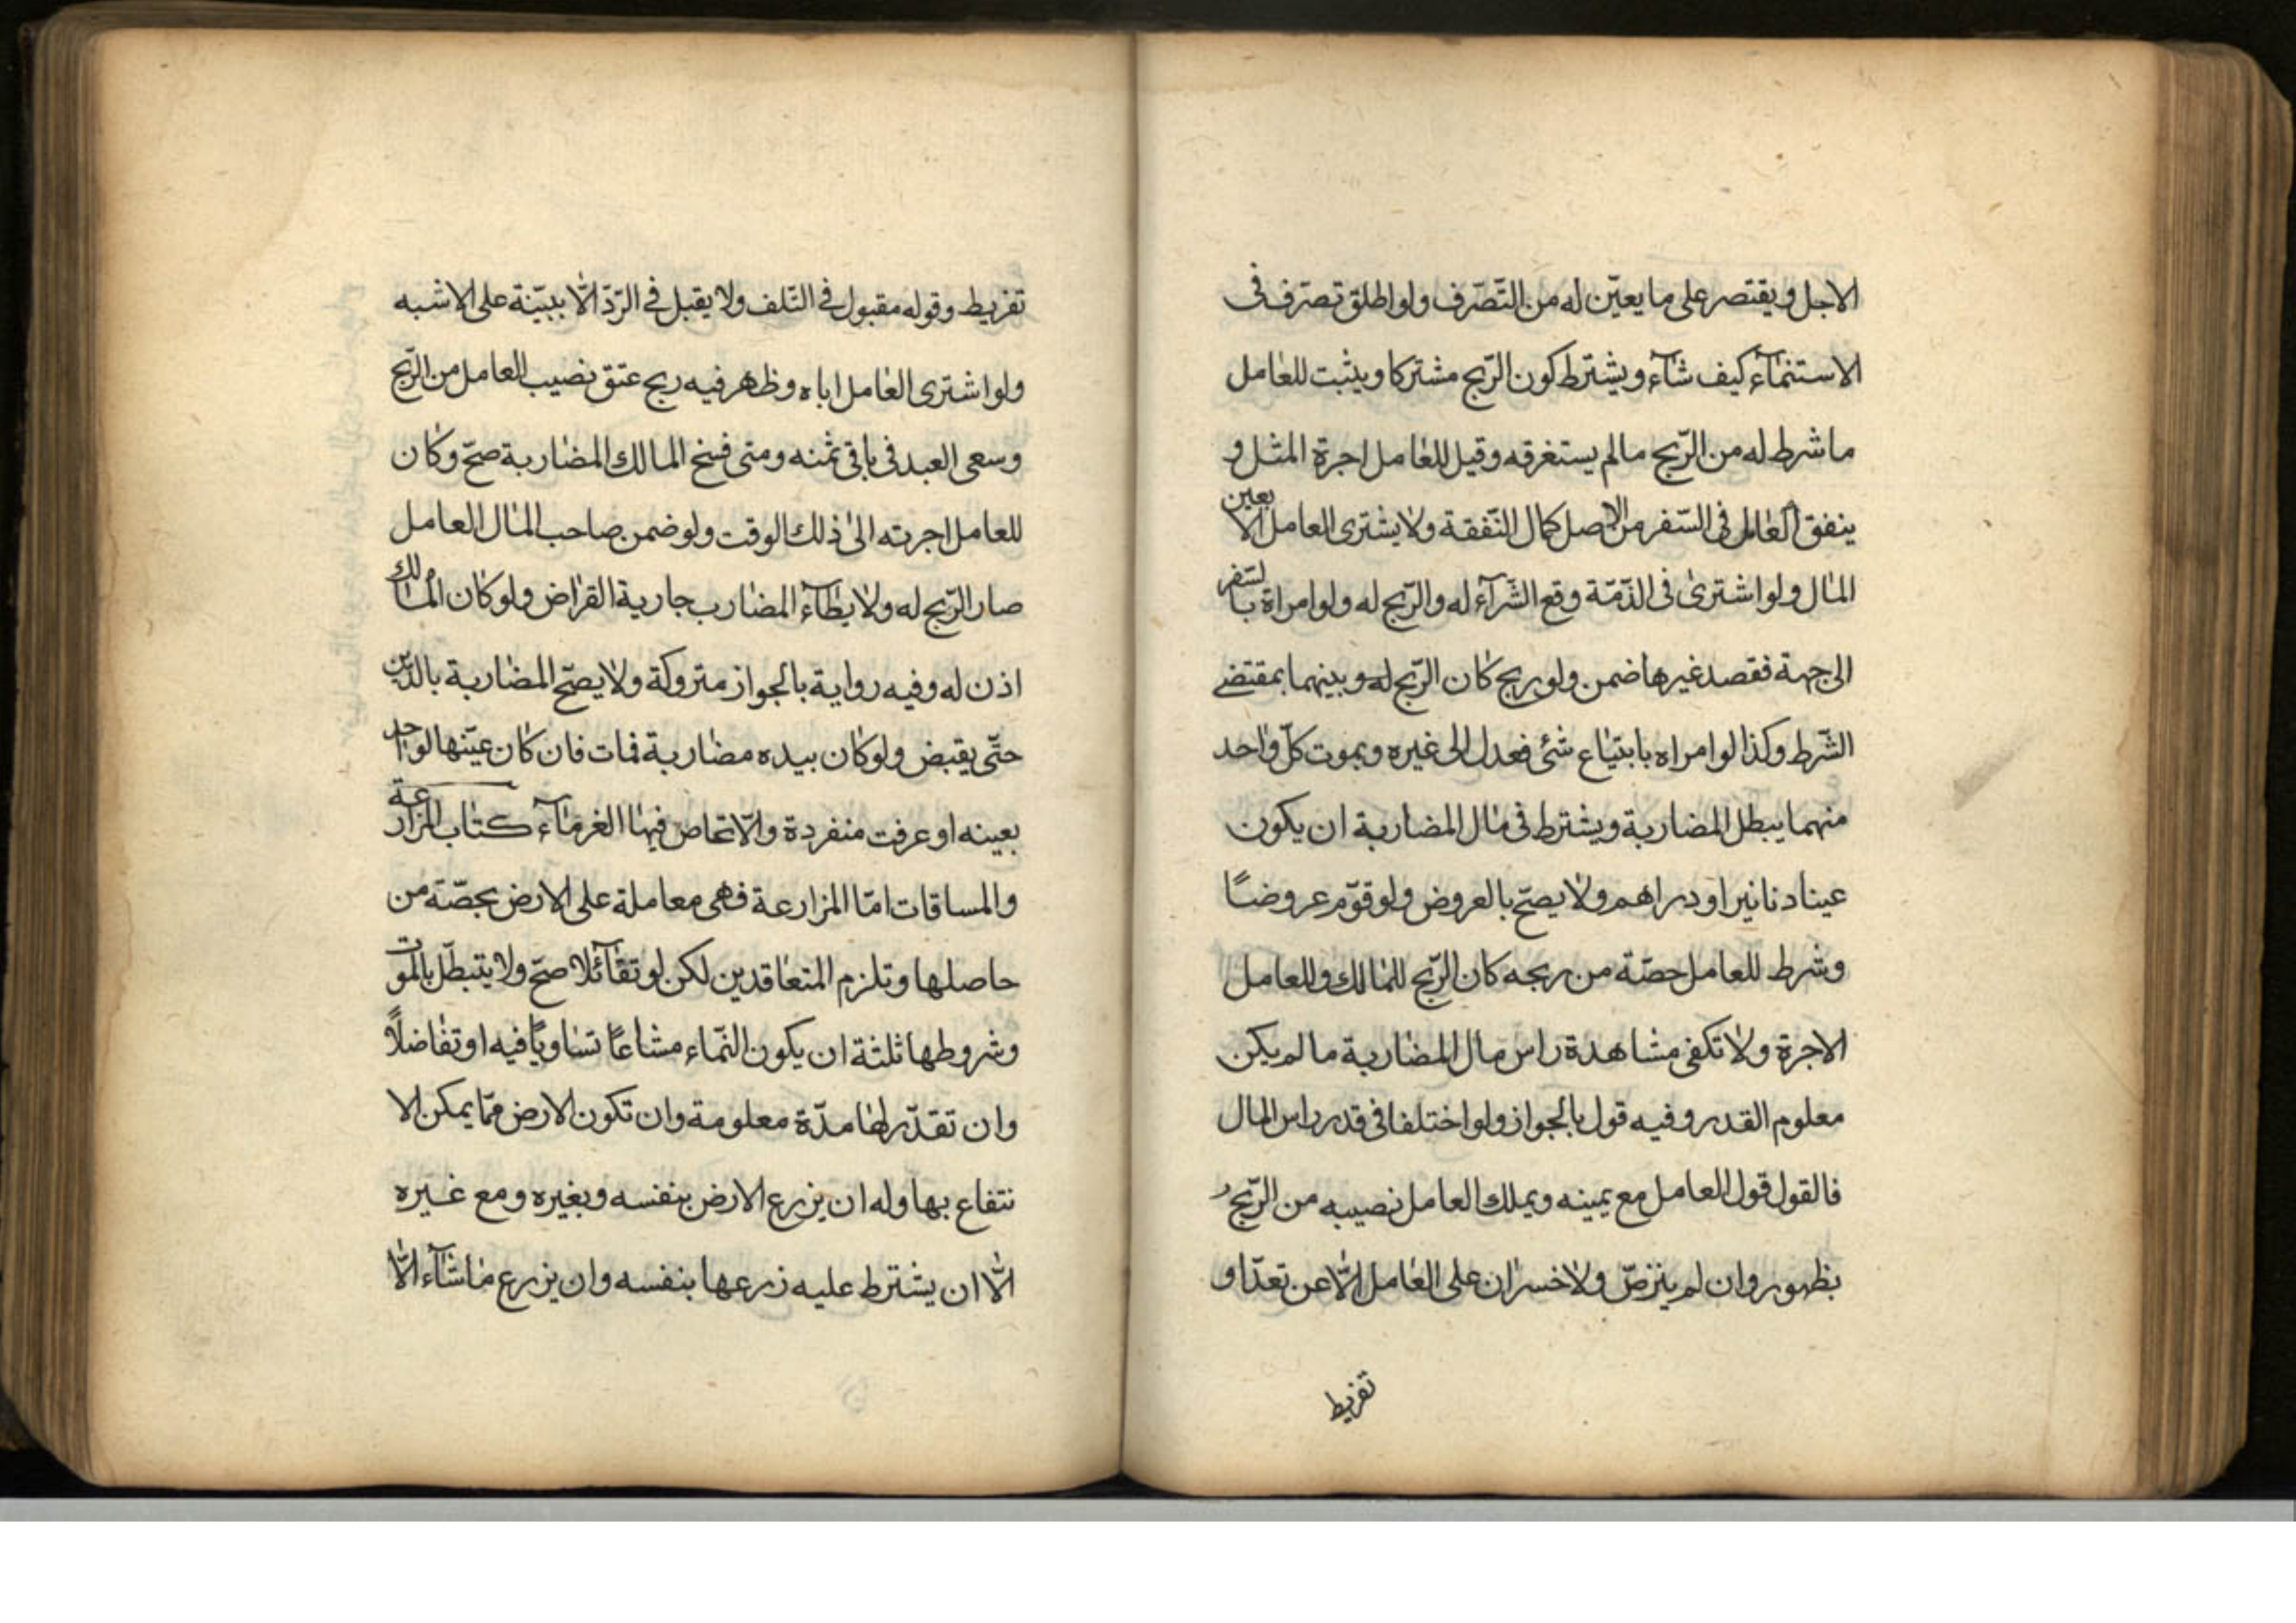 الاجل ويقتصر على ما يعيّن له من التّصرّف ولو اطلق تصرّف فى
الاستنمآء كيف شآء ويشترط كون الرّبح مشتركا ويثبت للعامل
ما شرط له من الرّبح ما لم يستغرقه وقيل للعامل اجرة المثل و
ينفق العامل فى السّفر من الاصل كمال النّفقة ولا يشترى العامل الا بعين
المال ولو اشترى فى الذّمّة وقع الشّرآء له والرّبح له ولو امراة بالسّفر
الى جهة فقصد غيرها ضمن ولو ربح كان الرّبح له وبينهما بمقتضى
الشّرط وكذا لو امراه بابتياع شئ فعدل الى غيره وبموت كلّ واحد
منهما يبطل المضاربة ويشترط فى مال المضاربة ان يكون
عينا دنانير او دراهم ولا يصحّ بالعروض ولو قوّم عروضًا
وشرط للعامل حصّة من ربحه كان الرّبح للمالك وللعامل
الاجرة ولا تكفى مشاهدة راس مال المضاربة ما لم يكن
معلوم القدر وفيه قول بالجواز ولو اختلفا فى قدر راس المال
فالقول قول العامل مع يمينه ويملك العامل نصيبه من الرّبح
بظهوره وان لم ينزضّ ولا خسران على العامل الّا عن تعدّ او
تفريط
تفريط وقوله مقبول فى التّلف ولا يقبل فى الرّدّ الّا ببيّنة على الاشبه
ولو اشترى العامل اباه وظهر فيه ربح عتق نصيب العامل من الرّبح
وسعى العبد فى باقى ثمنه ومتى فسخ المالك المضاربة صحّ وكان
للعامل اجرته الى ذلك الوقت ولو ضمن صاحب المال العامل
صار الرّبح له ولا يطآء المضارب جارية القراض ولو كان المالك
اذن له وفيه رواية بالجواز متروكة ولا يصحّ المضاربة بالدّين
حتّى يقبض ولو كان بيده مضاربة فمات فان كان عيّنها لواحد
بعينه او عرفت منفردة والّا تحاص فيها الغرمآء كتاب المزارعة
والمساقات امّا المزارعة فهى معاملة على الارض بحصّة من
حاصلها وتلزم المتعاقدين لكن لو تقآئلا صحّ ولا يتبطّل بالموت
وشروطها ثلثة ان يكون النّماء مشاعًا تساويًا فيه او تفاضلًا
وان تقدّر لها مدّة معلومة وان تكون الارض ممّا يمكن الا
نتفاع بها وله ان يزرع الارض بنفسه وبغيره ومع غيره
الّا ان يشترط عليه زرعها بنفسه وان يزرع ما شآء الّا